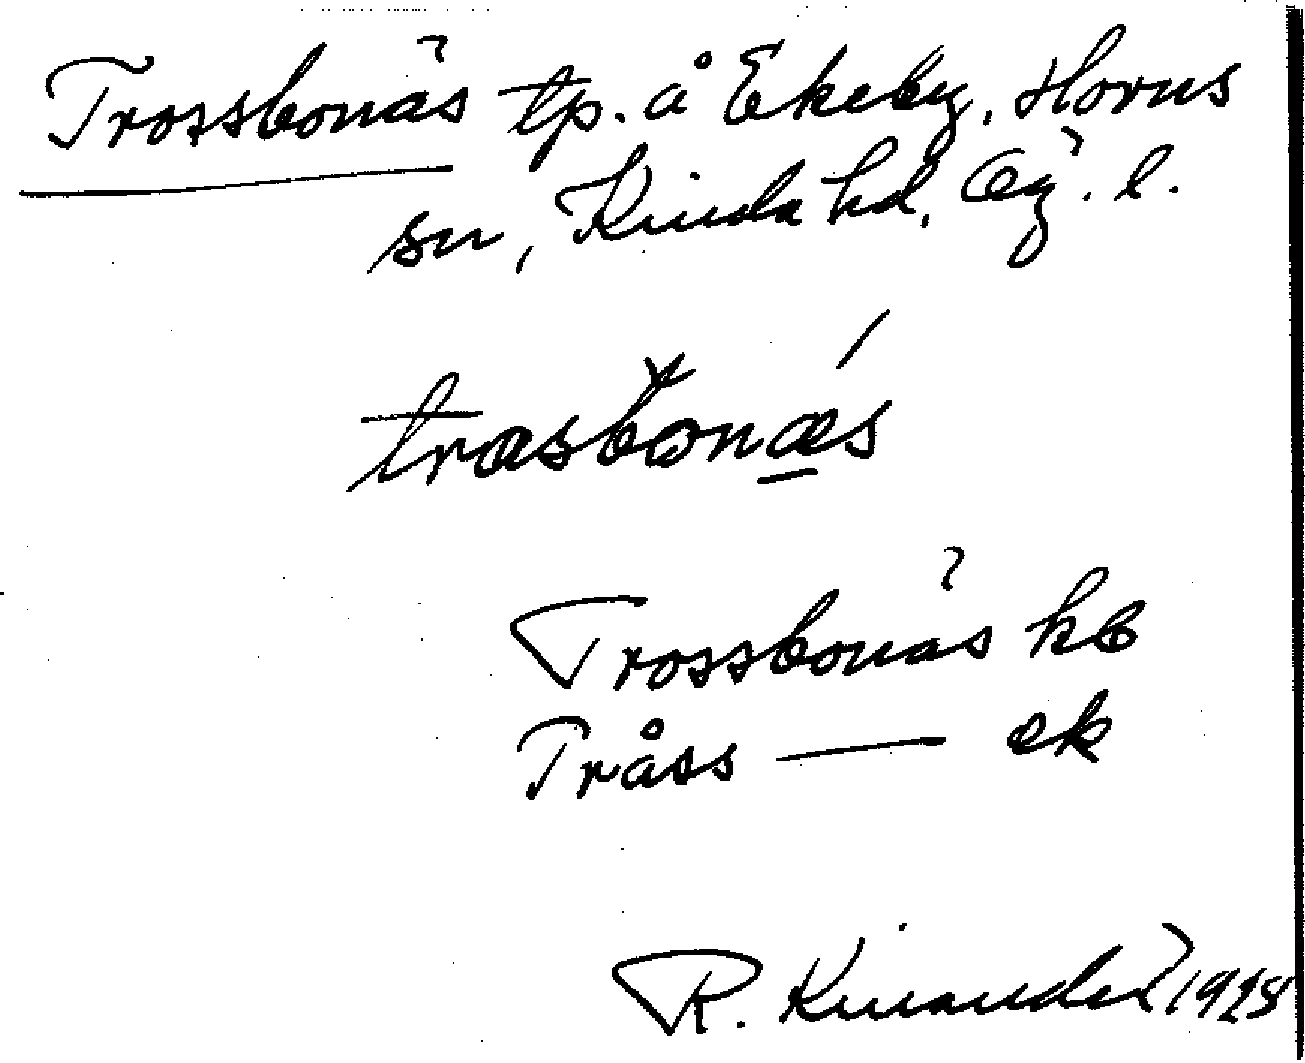 Trossbonäs tp. å Ekeby, Horns
sn, Kinda hd, Ög. l.
Trossbonäs kb
Tråss — ek
R. Kinander 1925